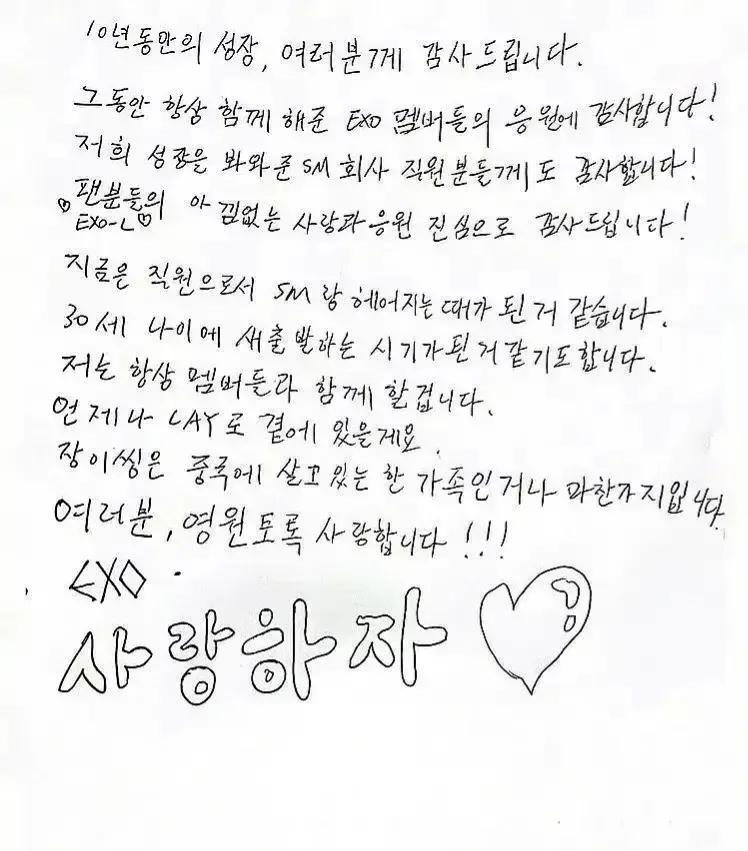 10년동안의 성장, 여러분께 감사드립니다.
그동안 항상 함께 해준 EXO 멤버들의 응원에 감사합니다!
저희 성장을 봐와준 SM 회사 직원분들께도 감사합니다!
팬분들의 아낌없는 사랑과 응원 진심으로 감사드립니다!
EXO-L
지금은 직원으로서 SM랑 헤어지는 때가 된 거 같습니다.
30세 나이에 새출발하는 시기가 된거 같기도합니다.
저는 항상 멤버들과 함께 할겁니다.
언제나 LAY로 곁에 있을게요.
장이씽은 중국에 살고있는 한 가족인거나 마찬가지입니다.
여러분, 영원토록 사랑합니다!!!
EXO.
사랑하자